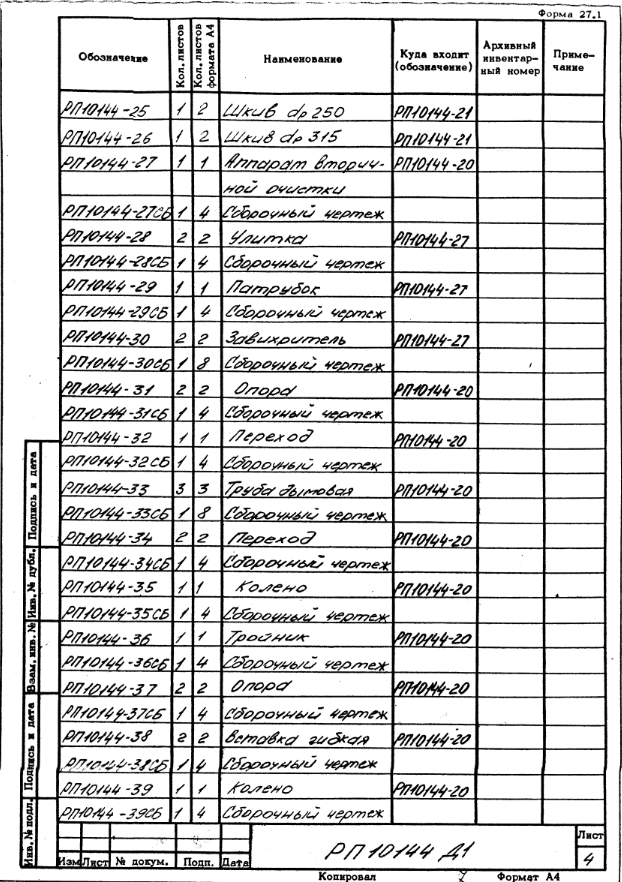 Форма 27.1
Обозначение Кол. листов Кол. листов формата А4 Наименование Куда входит (обозначение) Архивный инвентарный номер Примечание
РП10144-25 1 2 Шкив dр 250 РП10144-21
РП10144-26 1 2 Шкив dр 315 РП10144-21
РП10144-27 1 1 Аппарат вторич- РП10144-20
ной очистки
РП10144-27СБ 1 4 Сборочный чертеж
РП10144-28 2 2 Улитка РП10144-27
РП10144-28СБ 1 4 Сборочный чертеж
РП10144-29 1 1 Патрубок РП10144-27
РП10144-29СБ 1 4 Сборочный чертеж
РП10144-30 2 2 Завихритель РП10144-27
РП10144-30СБ 1 8 Сборочный чертеж
РП10144-31 2 2 Опора РП10144-20
РП10144-31СБ 1 4 Сборочный чертеж
РП10144-32 1 1 Переход РП10144-20
РП10144-32СБ 1 4 Сборочный чертеж
РП10144-33 3 3 Труба дымовая РП10144-20
РП10144-33СБ 1 8 Сборочный чертеж
РП10144-34 2 2 Переход РП10144-20
РП10144-34СБ 1 4 Сборочный чертеж
РП10144-35 1 1 Колено РП10144-20
РП10144-35СБ 1 4 Сборочный чертеж
РП10144-36 1 1 Тройник РП10144-20
РП10144-36СБ 1 4 Сборочный чертеж
РП10144-37 2 2 Опора РП10144-20
РП10144-37СБ 1 4 Сборочный чертеж
РП10144-38 2 2 Вставка гибкая РП10144-20
РП10144-38СБ 1 4 Сборочный чертеж
РП10144-39 1 1 Колено РП10144-20
РП10144-39СБ 1 4 Сборочный чертеж
Подпись и дата
Инв. № дубл.
Взам. инв. №
Подпись и дата
Инв. № подл.
Изм Лист № докум. Подп. Дата
РП 10144 Д1
Лист
4
Копировал Формат А4